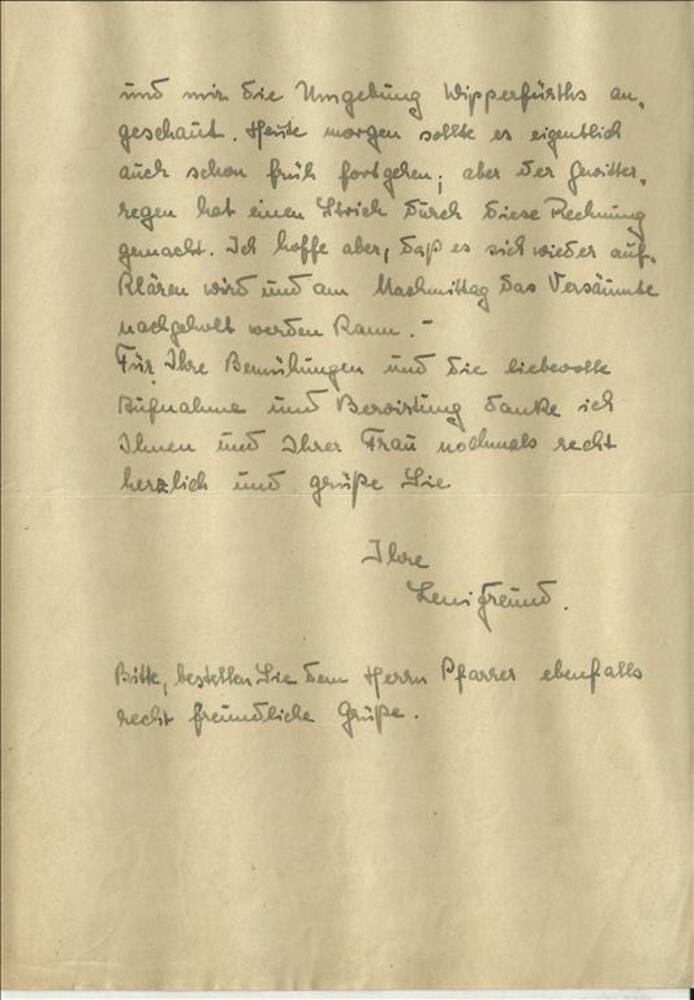 und mir die Umgebung Wipperfürths an-
geschaut. Heute morgen sollte es eigentlich
auch schon früh fortgehen; aber der Gewitter-
regen hat einen Strich durch diese Rechnung
gemacht. Ich hoffe aber, daß es sich wieder auf-
klären wird und am Nachmittag das Versäumte
nachgeholt werden kann. –
Für Ihre Bemühungen und die liebevolle
Aufnahme und Bewirtung danke ich
Ihnen und Ihrer Frau nochmals recht
herzlich und grüße Sie
Ihre
Leni Freund.
Bitte, bestellen Sie dem Herrn Pfarrer ebenfalls
recht freundliche Grüße.